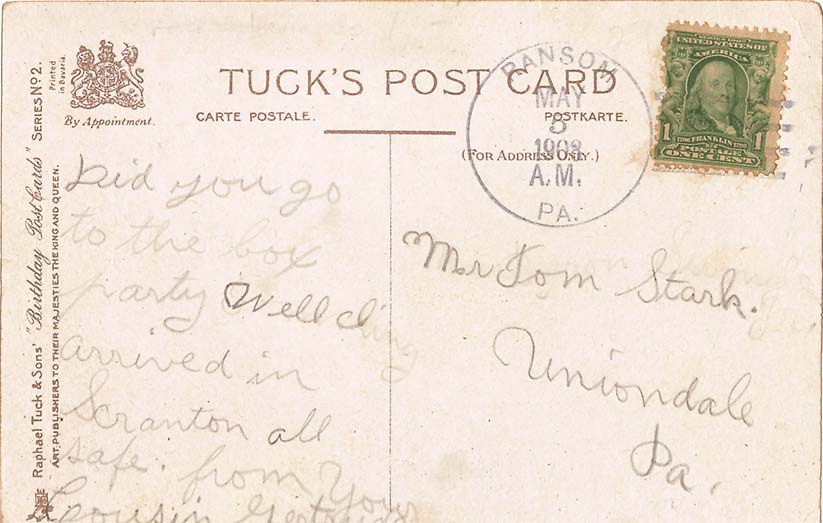 TUCK'S POST CARD
CARTE POSTALE.
POSTKARTE.
(FOR ADDRESS ONLY.)
By Appointment.
Printed
in Bavaria.
Raphael Tuck & Sons' "Birthday Post Cards" SERIES No 2.
ART PUBLISHERS TO THEIR MAJESTIES THE KING AND QUEEN.
RANSOM
MAY
3
1908
A.M.
PA.
UNITED STATES OF
AMERICA
1 FRANKLIN 1
POSTAGE
ONE CENT
Did you go
to the box
party Well
arrived in
Scranton all
safe. from Your
Cousin Gertrude
Mr Tom Stark.
Uniondale
Pa.